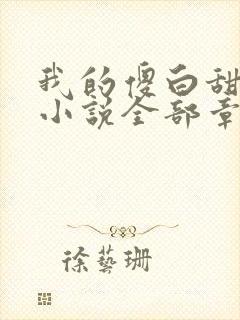 我的傻白甜
小说全部章
徐藝珊